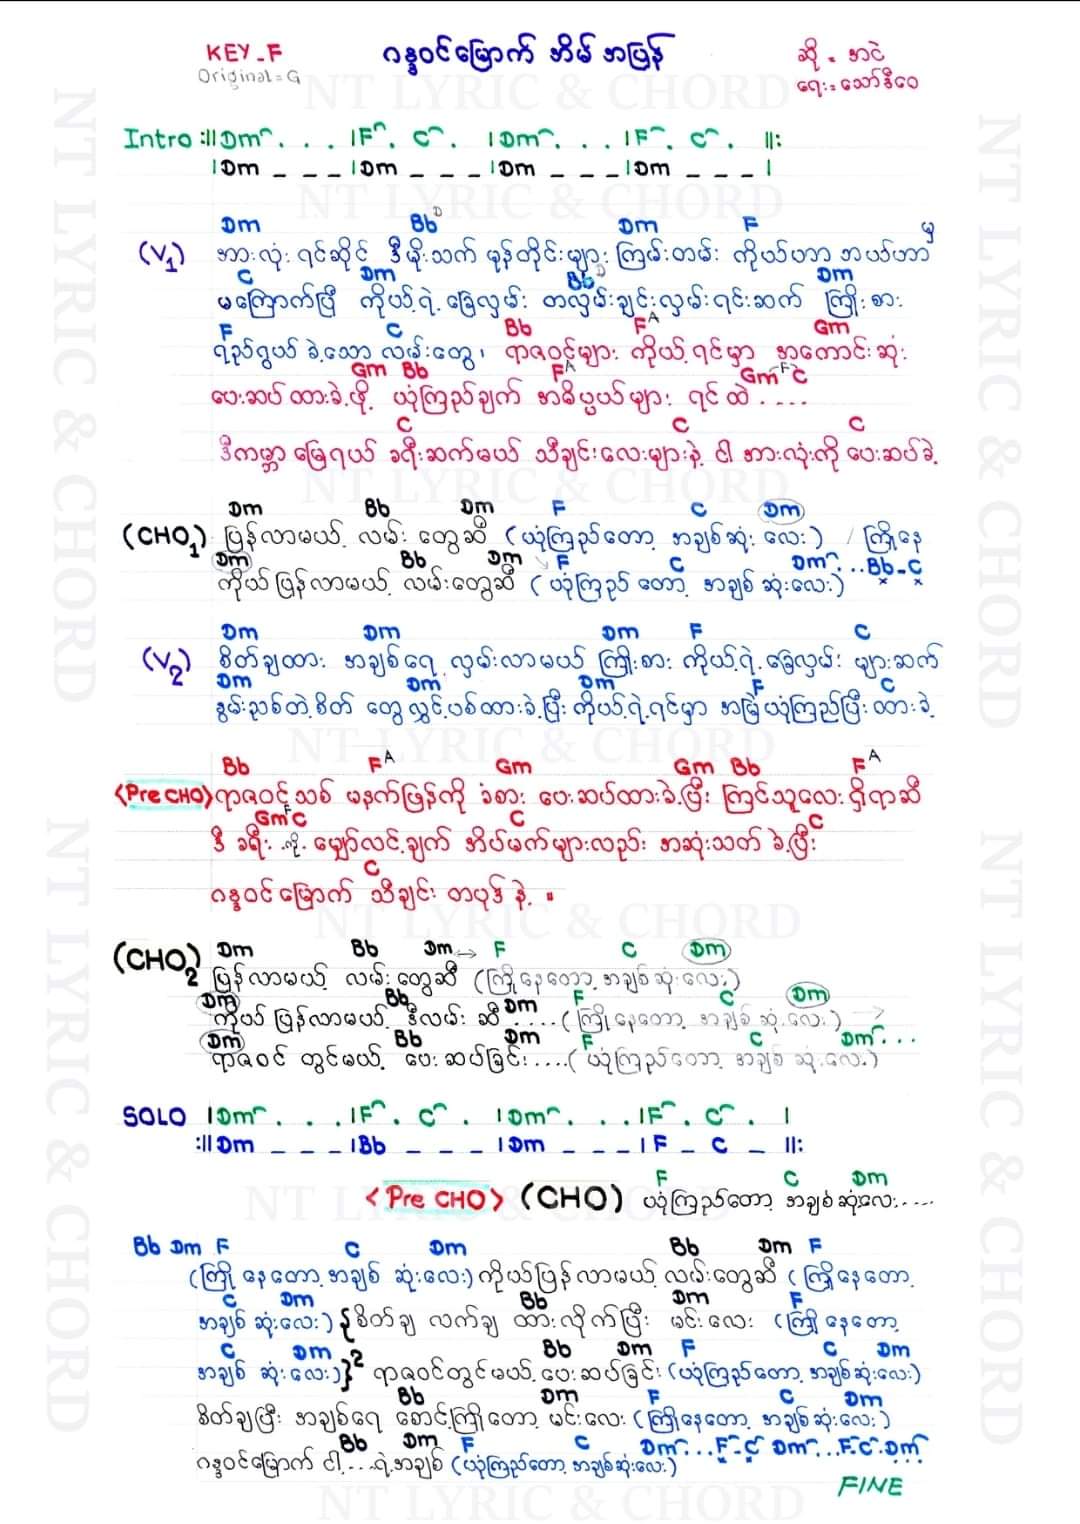 KEY-F ဂန္ဓဝင်မြောက် အိမ်အပြန် ဆို - အငဲ
Original = G ရေး = သော်ဒီဝေ
NT LYRIC & CHORD
Intro :||Dm . . . |F . C . |Dm . . . |F . C . ||:
|Dm _ _ _ |Dm _ _ _ |Dm _ _ _ |Dm _ _ _ |
Dm Bb D Dm F
(V1) အားလုံး ရင်ဆိုင် ဒီမိုးသက် မုန်တိုင်းများ ကြမ်းတမ်း ကိုယ်ဟာ ဘယ်ဟာမှ
C Dm Bb D Dm
မကြောက်ပြီ ကိုယ့်ရဲ့ ခြေလှမ်း တလှမ်းချင်းလှမ်းရင်းဆက် ကြိုးစား
F C Bb F A Gm
ရည်ရွယ် ခဲ့သော လမ်းတွေ၊ ရာဇဝင်များ ကိုယ့်ရင်မှာ အကောင်းဆုံး
Gm Bb F A Gm F C
ပေးဆပ်ထားခဲ့ဖို့ ယုံကြည်ချက် အဓိပ္ပယ်များ ရင်ထဲ ....
C C C
ဒီကမ္ဘာမြေရယ် ခရီးဆက်မယ် သီချင်းလေးများနဲ့ ငါ အားလုံးကို ပေးဆပ်ခဲ့
Dm Bb Dm F C Dm
(CHO1) ပြန်လာမယ့် လမ်းတွေဆီ (ယုံကြည်တော့ အချစ်ဆုံးလေး) / ကြိုနေ
Dm Bb Dm F C Dm . . . Bb - C
ကိုယ်ပြန်လာမယ့် လမ်းတွေဆီ (ယုံကြည်တော့ အချစ်ဆုံးလေး)
Dm Dm Dm F C
(V2) စိတ်ချထား အချစ်ရေ လှမ်းလာမယ် ကြိုးစား ကိုယ့်ရဲ့ ခြေလှမ်းများဆက်
Dm Dm Dm F C
နွမ်းညစ်တဲ့စိတ်တွေလွှင့်ပစ်ထားခဲ့ပြီး ကိုယ့်ရဲ့ရင်မှာ အမြဲယုံကြည်ပြီးထားခဲ့
Bb F A Gm Gm Bb F A
<Pre CHO> ရာဇဝင့်သစ် မနက်ဖြန်ကို ခံစား ပေးဆပ်ထားခဲ့ပြီး ကြင်သူလေးရှိရာဆီ
Gm F C C C
ဒီခရီးကို မျှော်လင့်ချက် အိပ်မက်များလည်း အဆုံးသတ်ခဲ့ပြီး
C
ဂန္ဓဝင်မြောက် သီချင်း တပုဒ်နဲ့ ။
Dm Bb Dm → F C Dm
(CHO2) ပြန်လာမယ့် လမ်းတွေဆီ (ကြိုနေတော့ အချစ်ဆုံးလေး)
Dm Bb Dm F C Dm
ကိုယ်ပြန်လာမယ့် ဒီလမ်းဆီ .....(ကြိုနေတော့ အချစ်ဆုံးလေး)
Dm Bb Dm F C Dm . . .
ရာဇဝင်တွင်မယ့် ပေးဆပ်ခြင်း ....(ယုံကြည်တော့ အချစ်ဆုံးလေး)
SOLO |Dm . . . |F . C . |Dm . . . |F . C . |
:||Dm _ _ _ |Bb _ _ _ |Dm _ _ _ |F _ C _ ||:
F C Dm
<Pre CHO> (CHO) ယုံကြည်တော့ အချစ်ဆုံးလေး ....
Bb Dm F C Dm Bb Dm F
(ကြိုနေတော့ အချစ်ဆုံးလေး) ကိုယ်ပြန်လာမယ့် လမ်းတွေဆီ (ကြိုနေတော့
C Dm Bb Dm F
အချစ်ဆုံးလေး) {စိတ်ချ လက်ချ ထားလိုက်ပြီး မင်းလေး (ကြိုနေတော့
C Dm Bb Dm F C Dm
အချစ်ဆုံးလေး)}2 ရာဇဝင်တွင်မယ့် ပေးဆပ်ခြင်း (ယုံကြည်တော့ အချစ်ဆုံးလေး)
Bb Dm F C Dm
စိတ်ချပြီး အချစ်ရေ စောင့်ကြိုတော့ မင်းလေး (ကြိုနေတော့ အချစ်ဆုံးလေး)
Bb Dm F C Dm . . . F - C Dm . . . F C . Dm
ဂန္ဓဝင်မြောက် ငါ့ ....ရဲ့အချစ် (ယုံကြည်တော့ အချစ်ဆုံးလေး)
FINE